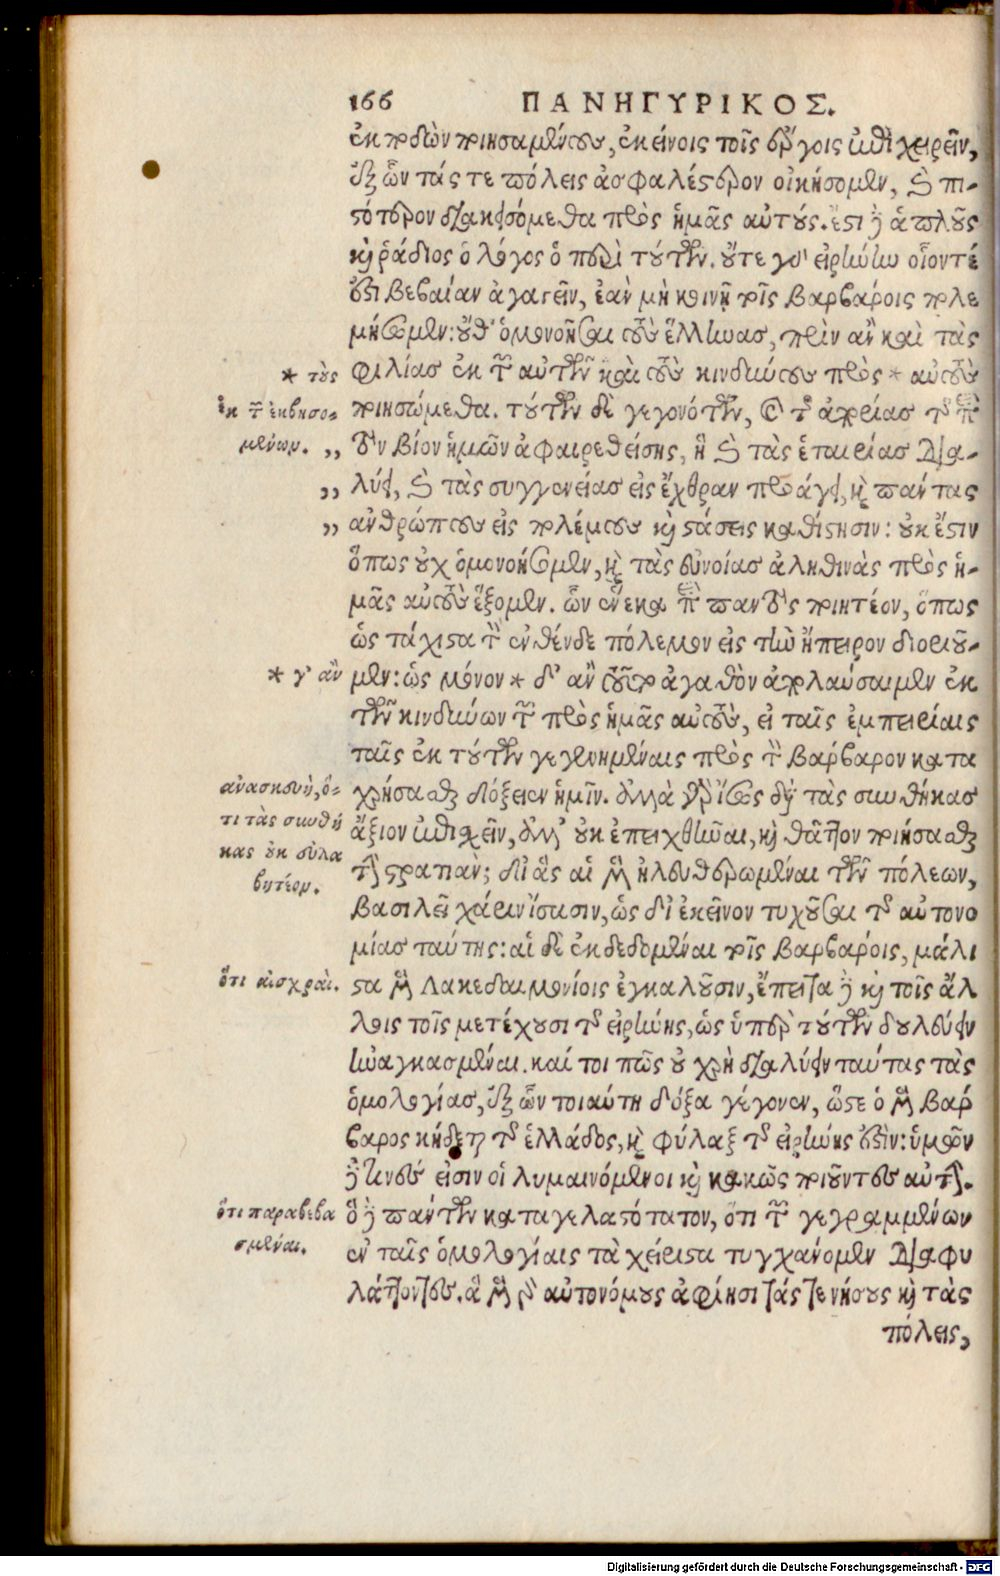 166 ΠΑΝΗΓΥΡΙΚΟΣ.
ἐκποδὼν ποιησαμένους, ἐκείνοις τοῖς ἔργοις ἐπιχειρεῖν,
ἐξ ὧν τάς τε πόλεις ἀσφαλέστερον οἰκήσομεν, καὶ πι-
στότερον διακεισόμεθα πρὸς ἡμᾶς αὐτούς. ἔστι δὲ ἁπλοῦς
καὶ ῥάδιος ὁ λόγος ὁ περὶ τούτων. οὔτε γὰρ εἰρήνην οἷόντέ
ἐστι βεβαίαν ἀγαγεῖν, ἐὰν μὴ κοινῇ τοῖς βαρβάροις πολε
μήσωμεν: οὔθ' ὁμονοῆσαι τοὺς ἕλληνας, πρὶν ἂν καὶ τὰς
* τοὺς
φιλίας ἐκ τῶν αὐτῶν καὶ τοὺς κινδύνους πρὸς * αὐτοὺς
ἐκ τῶν ἐκβησο-
ποιησώμεθα. τούτων δὲ γεγονότων, καὶ τῆς ἀπορίας τῆς περὶ
μένων. ,,
τὸν βίον ἡμῶν ἀφαιρεθείσης, ἣ καὶ τὰς ἑταιρίας δια-
,, λύει, καὶ τὰς συγγενείας εἰς ἔχθραν προάγει, καὶ πάντας
,, ἀνθρώπους εἰς πολέμους καὶ στάσεις καθίστησιν: οὐκ ἔστιν
ὅπως οὐχ ὁμονοήσομεν, καὶ τὰς εὐνοίας ἀληθινὰς πρὸς ἡ-
μᾶς αὐτοὺς ἕξομεν. ὧν ἕνεκα περὶ παντὸς ποιητέον, ὅπως
ὡς τάχιστα τὸν ἐνθένδε πόλεμον εἰς τὴν ἤπειρον διοριοῦ-
* γ' ἂν
μεν: ὡς μόνον * δ' ἂν τοῦτο ἀγαθὸν ἀπολαύσαιμεν ἐκ
τῶν κινδύνων τῶν πρὸς ἡμᾶς αὐτοὺς, εἰ ταῖς ἐμπειρίαις
ταῖς ἐκ τούτων γεγενημέναις πρὸς τὸν βάρβαρον κατα
ἀνασκευὴ, ὅ-
χρήσασθαι δόξειεν ἡμῖν. ἀλλὰ γὰρ ἴσως διὰ τὰς συνθήκας
τι τὰς συνθή
ἄξιον ἐπισχεῖν, ἀλλ' οὐκ ἐπειχθῆναι, καὶ θᾶττον ποιήσασθαι
κας οὐκ εὐλα
τὴν στρατιὰν; δι' ἃς αἱ μὲν ἠλευθερωμέναι τῶν πόλεων,
βητέον.
βασιλεῖ χάριν ἴσασιν, ὡς δι' ἐκεῖνον τυχοῦσαι τῆς αὐτονο
μίας ταύτης: αἱ δὲ ἐκδεδομέναι τοῖς βαρβάροις, μάλι
ὅτι αἰσχραὶ.
στα μὲν Λακεδαιμονίοις ἐγκαλοῦσιν, ἔπειτα δὲ καὶ τοῖς ἄλ
λοις τοῖς μετέχουσι τῆς εἰρήνης, ὡς ὑπὲρ τούτων δουλεύειν
ἠναγκασμέναι. καίτοι πῶς οὐ χρὴ διαλύειν ταύτας τὰς
ὁμολογίας, ἐξ ὧν τοιαύτη δόξα γέγονεν, ὥστε ὁ μὲν βάρ
βαρος κήδεται τῆς ἑλλάδος, καὶ φύλαξ τῆς εἰρήνης ἐστὶν: ὑμῶν
δὲ τινές εἰσιν οἱ λυμαινόμενοι καὶ κακῶς ποιοῦντες αὐτὴν.
ὅτι παραβεβα
ὃ δὲ πάντων καταγελαστότατον, ὅτι τῶν γεγραμμένων
σμέναι.
ἐν ταῖς ὁμολογίαις τὰ χείριστα τυγχάνομεν διαφυ
λάττοντες. ἃ μὲν γὰρ αὐτονόμους ἀφίησι τάς τε νήσους καὶ τὰς
πόλεις,
Digitalisierung gefördert durch die Deutsche Forschungsgemeinschaft - DFG